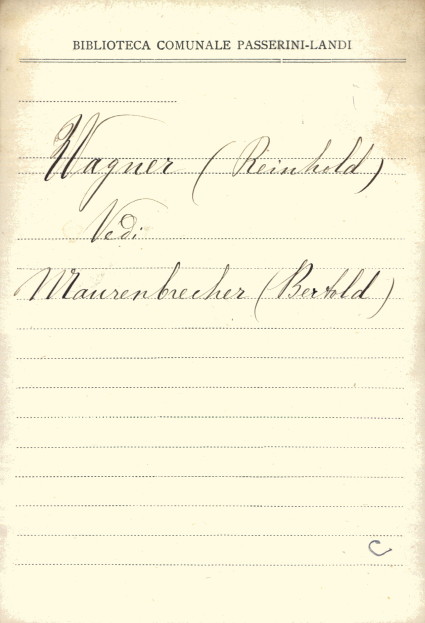 BIBLIOTECA COMUNALE PASSERINI-LANDI
Wagner (Reinhold)
Vedi
Maurenbrecher (Bertold)
C